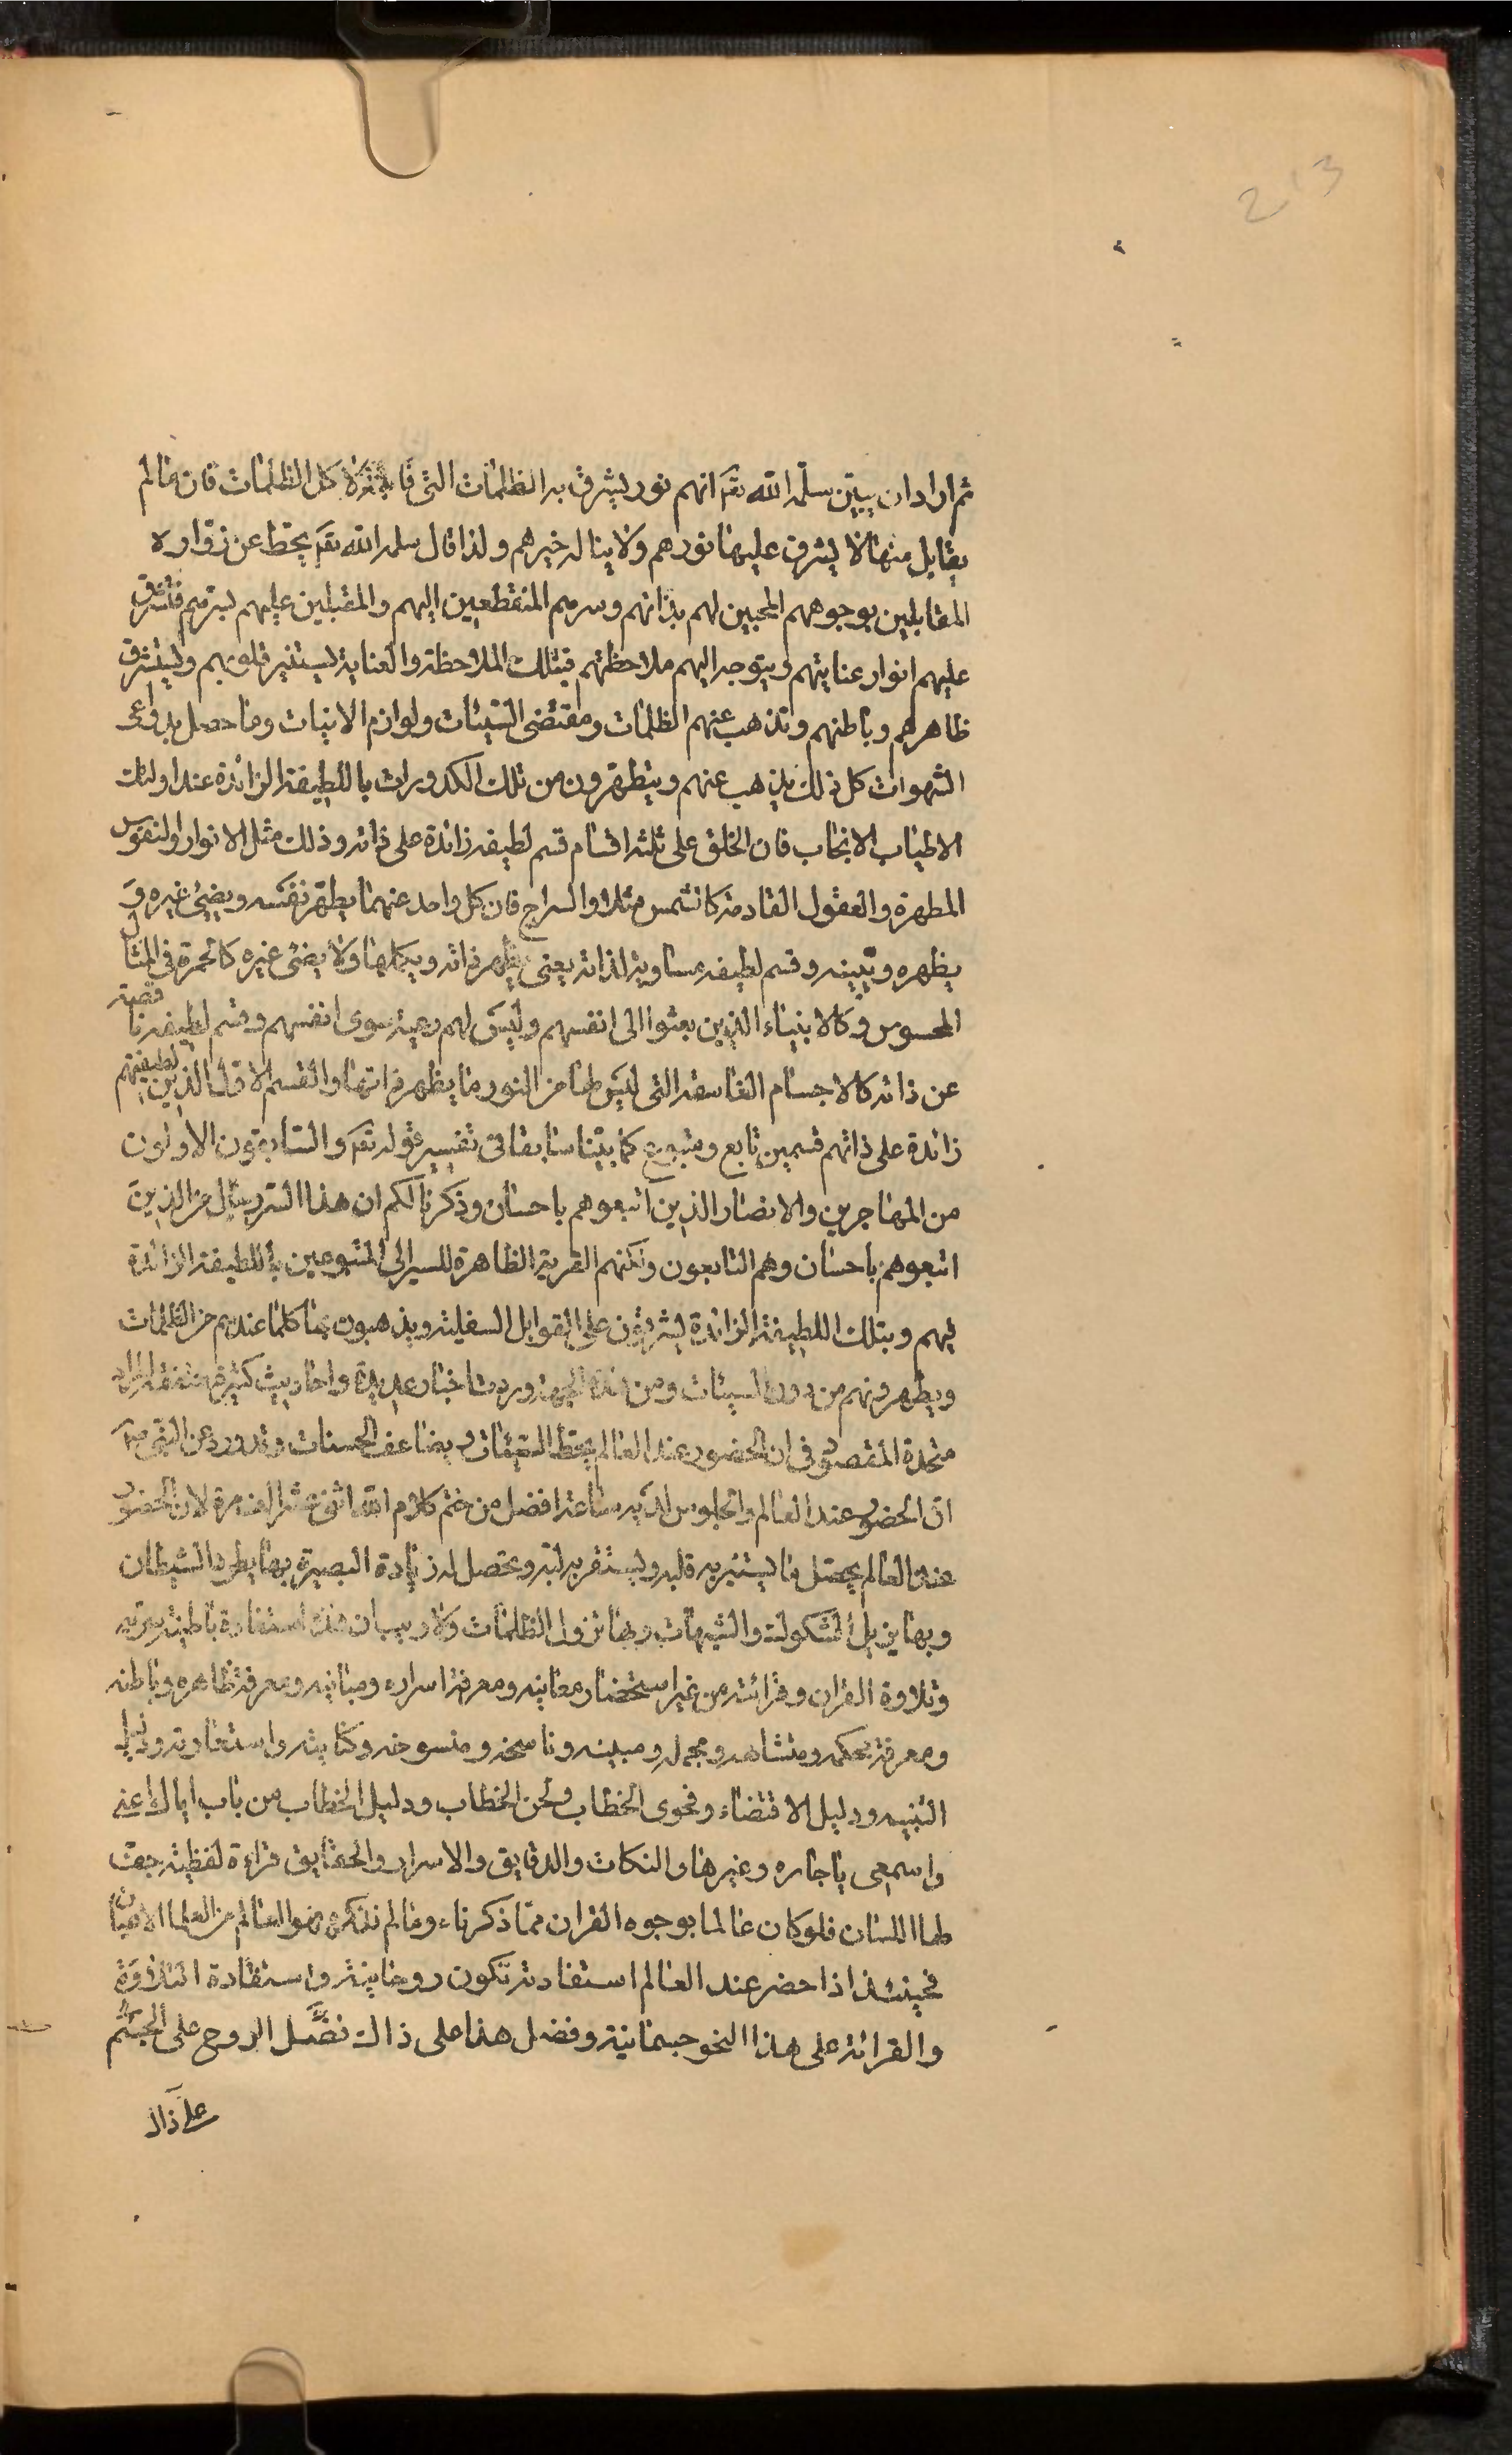 213
ثم اراد ان يبيّن سلّمه الله تعَ انهم نور ليشرق به الظلمات التى كل الظلمات فان مالم
يقابل منها لا يشرق عليها نورهم ولا يناله خيرهم ولذا قال سلمه الله تعَ يحط عن زوّاره
المقابلين بوجوههم المحبين لهم بذاتهم وسرهم المنقطعين اليهم والمقبلين عليهم بسرّهم فتشرق
عليهم انوار عنايتهم ويتوجه اليهم ملاحظتهم فبتلك الملاحظة والعناية ليستنير قلوبهم وليتشرق
ظاهرهم وباطنهم وتذهب عنهم الظلمات ومقتضى السّيئات ولوازم الانيات وما حصل بدواعى
الشهوات كل ذلك يذهب عنهم ويتطهّرون من تلك الكدورات باللطيفة الزائدة عند اولئك
الاطياب الانجاب فان الخلق على ثلثة اقسام قسم لطيفه زائدة على ذاته وذلك مثل الانوار والنفوس
المطهرة والعقول القادسة كالشمس مثلا والسراج فان كل واحد عنهما يطهّر نفسه ويضيئ غيره وَ
يظهره ويبيّنه وقسم لطيفه مساوية لذاته يعنى يظهر ذاته ويكملها ولا يضئ غيره كالجمرة فى المثال
المحسوس وكالانبياء الذين بعثوا الى انفسهم وليسَ لهم رعية سوى انفسهم وقسم لطيفه ناقصة
عن ذاته كالاجسام الغاسقة التى ليسَ لها من النور ما يظهر ذاتها والقسم الاوّل الذين لطيفتهم
زائدة على ذاتهم قسمين تابع ومتبوع كما بيّنا سابقا فى تفسير قوله تعَ والسّابقون الاولون
من المهاجرين والانصار الذين اتبعوهم باحسان وذكرنا لكم ان هذا السّر يسئل من الذين
اتبعوهم باحسان وهم التابعون ولكنهم القرية الظاهرة للسير الى المتبوعين باللطيفة الزائدة
فيهم وبتلك اللطيفة الزائدة ليشرقون على القوابل السفلية ويذهبون بها كلما عندهم من الظلمات
ويطهرونهم من درن السيئات ومن هذه الجهة وردت اخبار عديدة واحاديث كثيرة متفقة المراد
متحدة المقصود فى ان الحضور عند العالم يحط السّيئات ويضاعف الحسنات وقد ورد عن النبى صَ
انّ الحضور عند العالم والجلوس لديه ساعة افضل من ختم كلام الله اثنى عشر الف مرة لان الحضور
عند العالم يحصّل ما ليستنير به قلبه وليستقر به لبّه وتحصل له زيادة البصيرة بها يطرد الشيطان
وبها يزيل الشكوك والشبهات وبها تزول الظلمات ولا ريب ان هذه استفادة باطنية سرّية
وتلاوة القران وقرائته من غير استحضار معانيه ومعرفة اسراره ومبانيه ومعرفة ظاهره وباطنه
ومعرفة محكمه ومتشابهه ومجمله ومبينه وناسخه ومنسوخه وكنايته واستعارته ودليل
التنبيه ودليل الاقتضاء وفحوى الخطاب ولحن الخطاب ودليل الخطاب من باب اياك اعنى
واسمعى يا جاره وغيرها والنكات والدقايق والاسرار والحقايق قراءة لفظية جهتـ
لها اللسان فلو كان عالما بوجوه القران ممّا ذكرناه ومالم نذكره فهو العالم من العلماء الاعيان
فحينئذ اذا حضر عند العالم استفادته تكون روحانية واستفادة التلاوَة
والقرائة على هذا النحو جسمانية وفضل هذا على ذاك نضَّل الروح على الجسْم
على ذاك